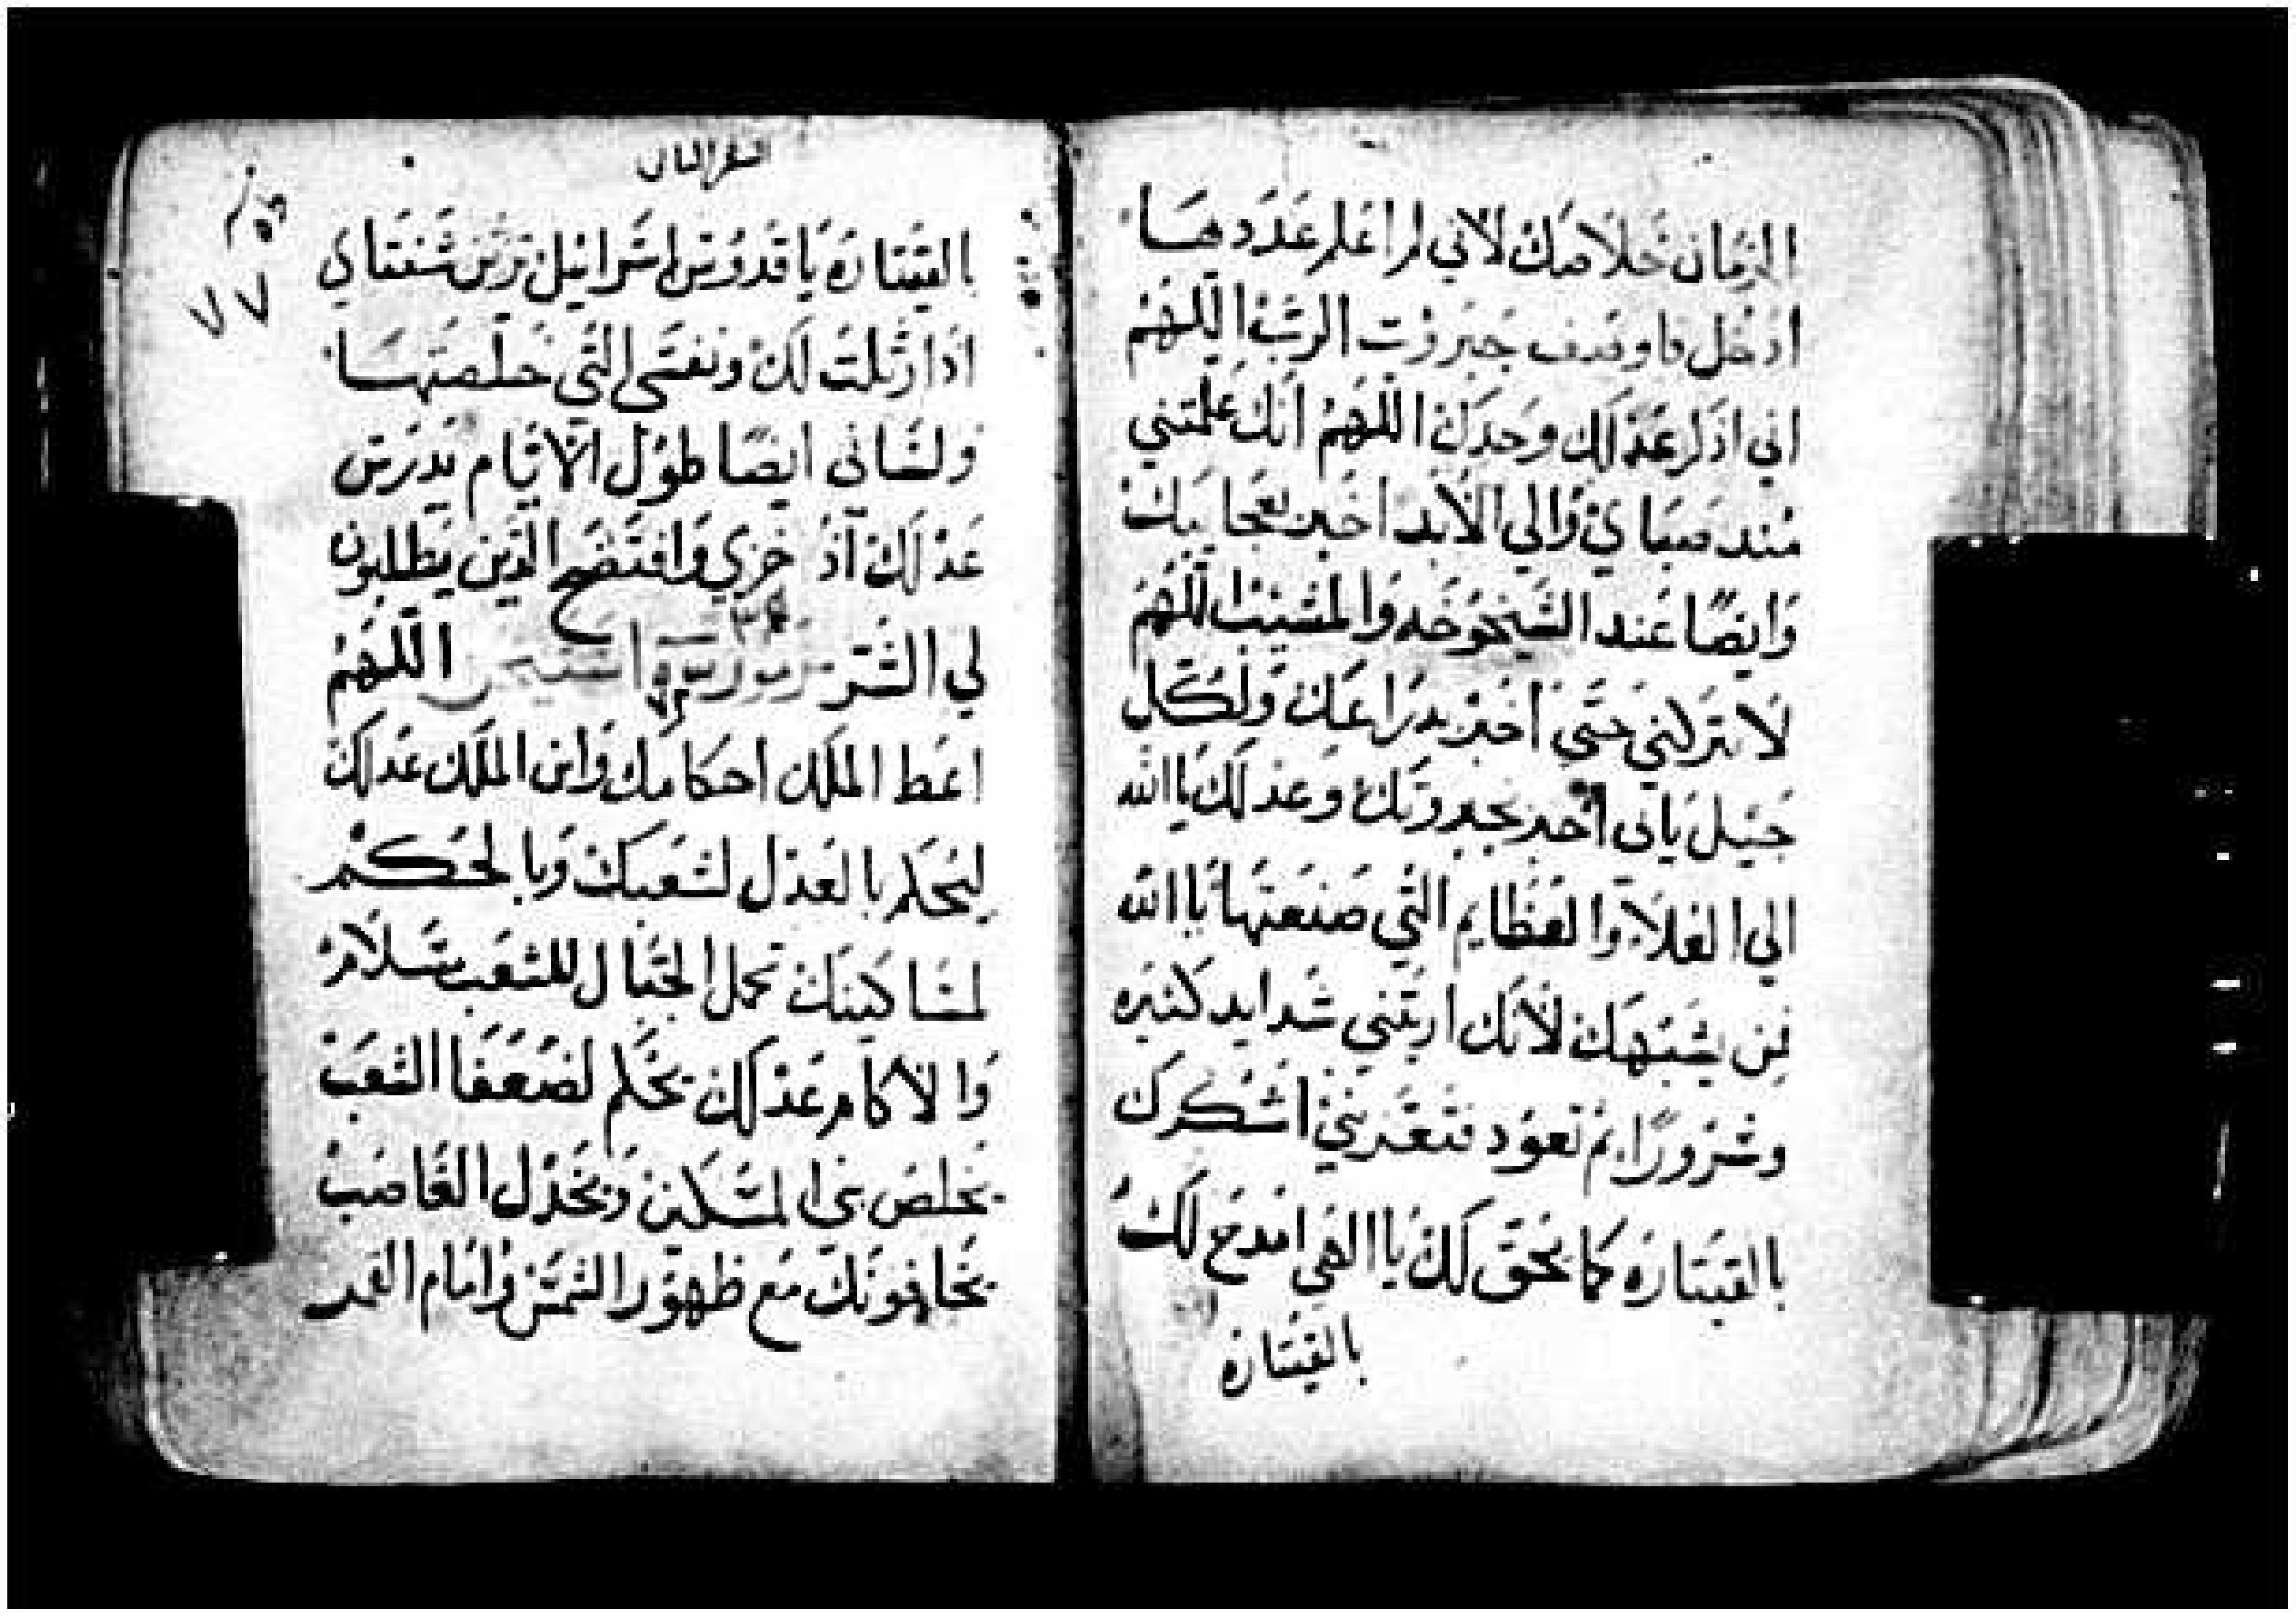 الزمَان خَلاصَك لاني لم اعَلم عَدَدهَا
ادخل فاوصف جبرَوُت الرَبّ اللهُمّ
اني اذكر عَدْلك وحَدك اللهُمُ انك علمتني
مُند صَبَايْ وَالي الأبد اخبر بعَجايبك
وَايضًا عَند الشيخوُخَه وَالمشيب اللهُمَ
لَا تتركني حَتي اخبر بدرَاعَك وَلكل
جَيل يَاتي اخبر بجبروَتك وعَدلك يَا الله
الي العَلآء وَالعَظايم التي صَنعَتهَا يَا الله
فمن يشبَهَك لأنك اريتني شدايد كثيره
وشرَورًا ثم تعوُد فتعَزيني اشكرك
بالقيتارَه كما يحَق لَك يَا الهَي امدح لكَ
بالقيتاره
السفر الثاني
٧٧
بالقيتارَه يَا قدوُس اسرَائيل تهَرس شفتاي
ادا رتلت لك ونفسي التي خلصتهَا
ولساني ايضًا طوُل الأيام يدرس
عَدلك اذ خزي وَافتضح الذين يَطلبون
لي الشر اللهُمُ
اعَط الملك احكامك وَابن الملك عَدلك
ليحَكم بالعَدل لشعَبك وَبالحكم
لمسَاكينك تحمل الجبَال للشعَب سَلامْ
وَالاكام عَدلك يحَكم لضعَفَا الشعَبْ
يخلص بني المسَكين وَيخذل الغَاصب
يخَافونك مَع ظهوُر الشمس وَامَام القمر